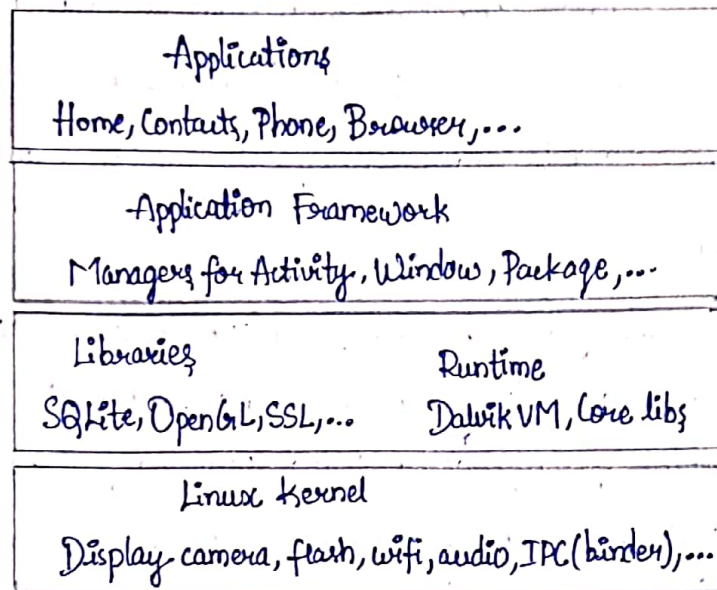 Applications
Home, Contacts, Phone, Browser,...
Application Framework
Managers for Activity, Window, Package,...
Libraries
Runtime
SQLite, OpenGL, SSL,...
Dalvik VM, Core libs
Linux Kernel
Display camera, flash, wifi, audio, IPC (binder),...